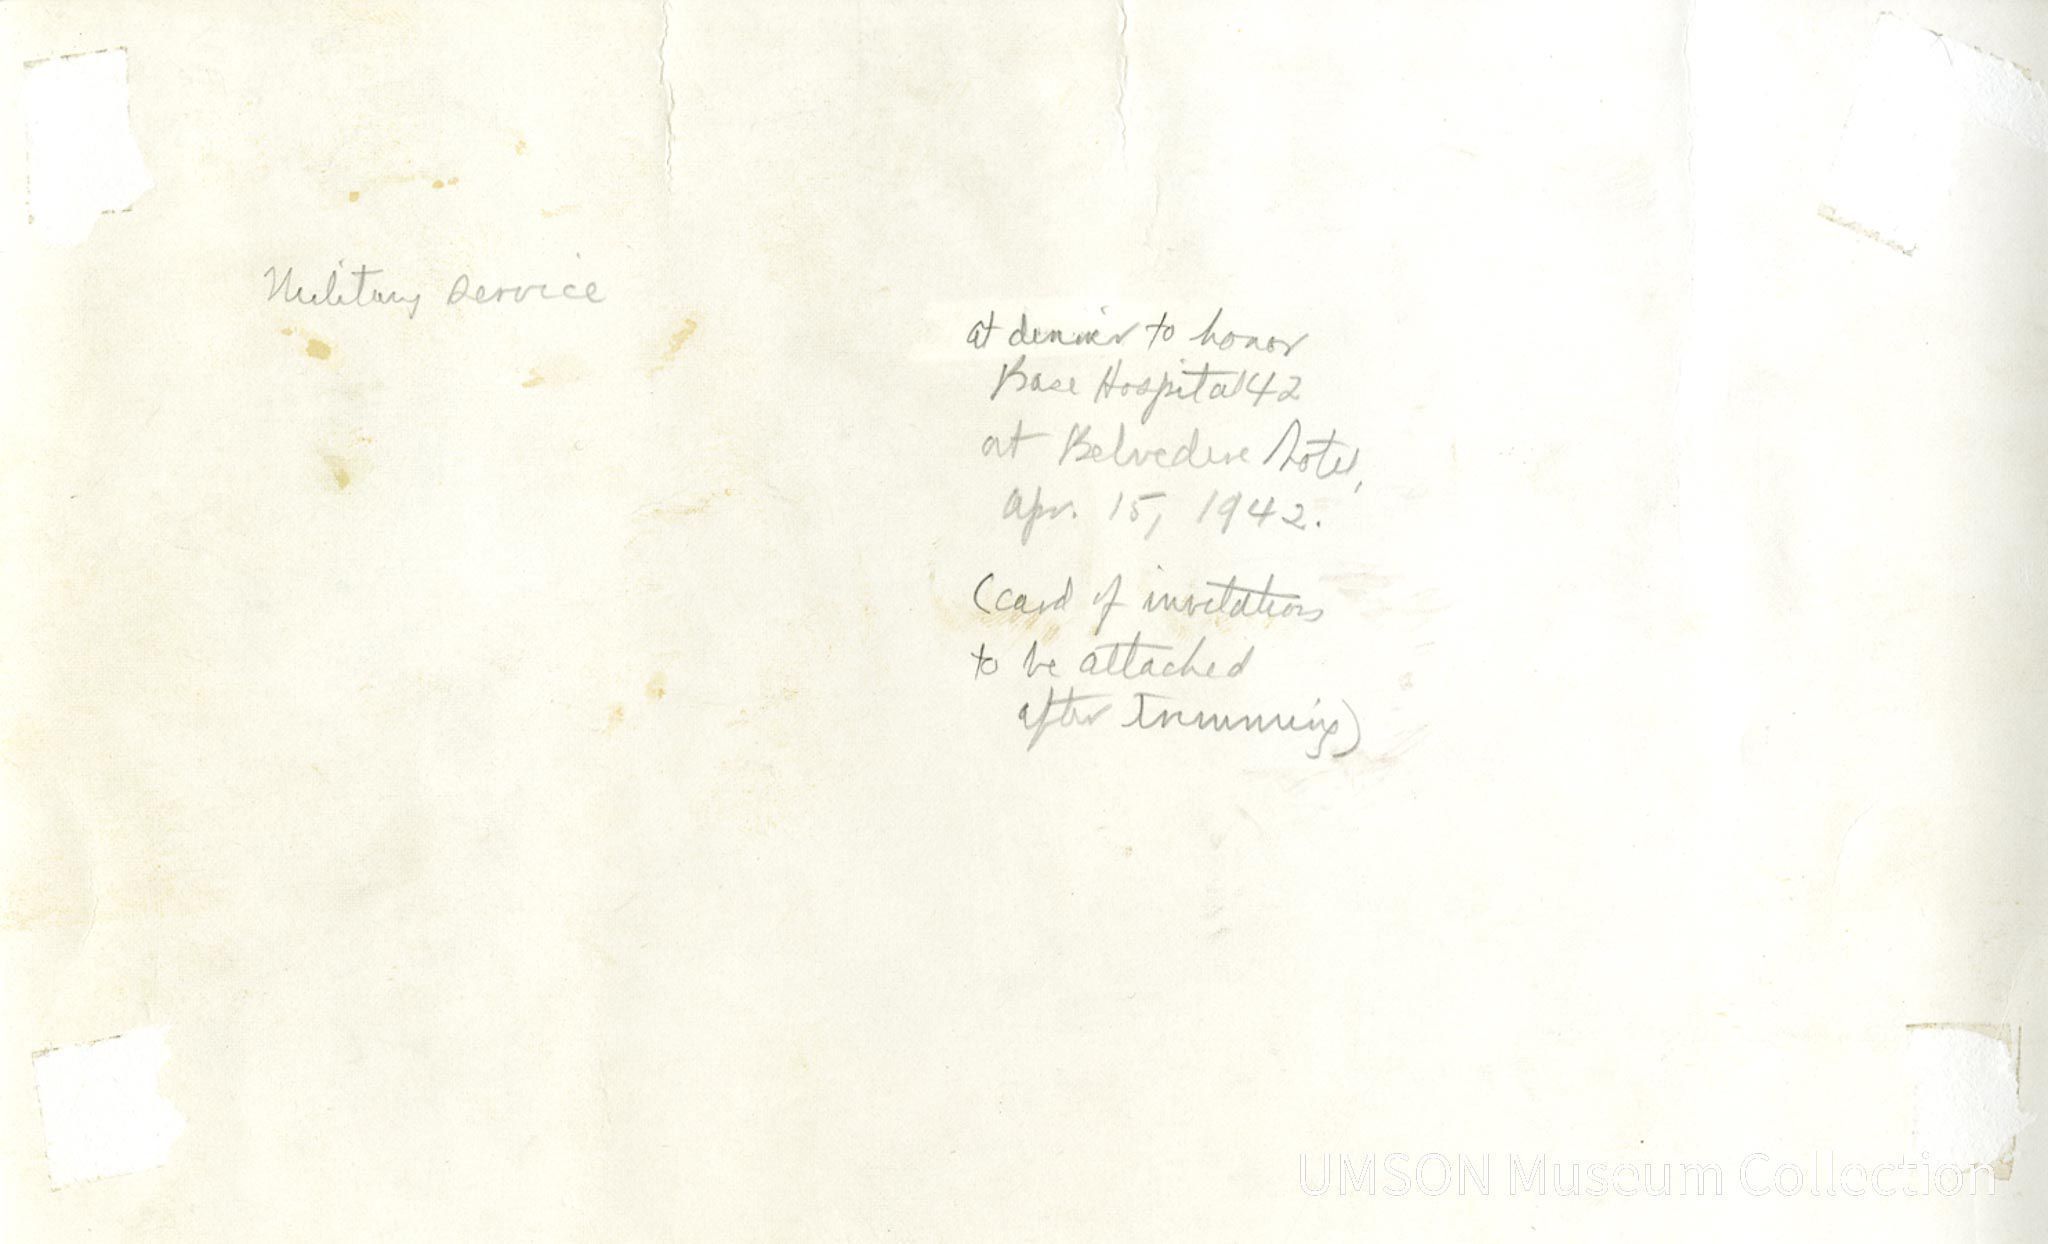 Military service
at dinner to honor
Base Hospital 42
at Belvedere Hotel,
Apr. 15, 1942.
(card of invitation
to be attached
after trimming)
UMSON Museum Collection